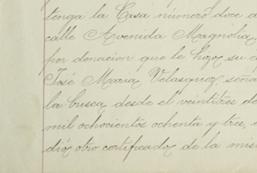 tenga la Casa número doce d
calle Avenida Magnolia
por donacion que le hizo su
José Maria Velasquez seña
la busca desde el veintitres de
mil ochocientos ochenta y tres,
dió otro certificado de la mis